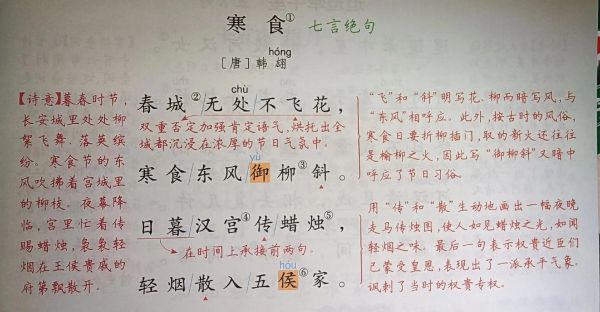 寒食① 七言绝句
hóng
[唐]韩翃
chù
春城②/无处/不飞花，
双重否定加强肯定语气，烘托出全
城都沉浸在浓厚的节日气氛中。
yù
寒食/东风/御柳③斜。
日暮/汉宫④/传蜡烛⑤，
在时间上承接前两句。
hóu
轻烟/散入/五侯⑥家。
【诗意】暮春时节，
长安城里处处柳
絮飞舞、落英缤
纷。寒食节的东
风吹拂着宫城里
的柳枝。夜幕降
临，宫里忙着传
赐蜡烛，袅袅轻
烟在王侯贵戚的
府第飘散开。
“飞”和“斜”明写花、柳而暗写风，与
“东风”相呼应。此外，按古时的风俗，
寒食日要折柳插门，取的新火还往往
是榆柳之火，因此写“御柳斜”又暗中
呼应了节日习俗。
用“传”和“散”生动地画出一幅夜晚
走马传烛图，使人如见蜡烛之光，如闻
轻烟之味。最后一句表示权贵近臣们
已蒙受皇恩，表现出了一派承平气象，
讽刺了当时的权贵专权。